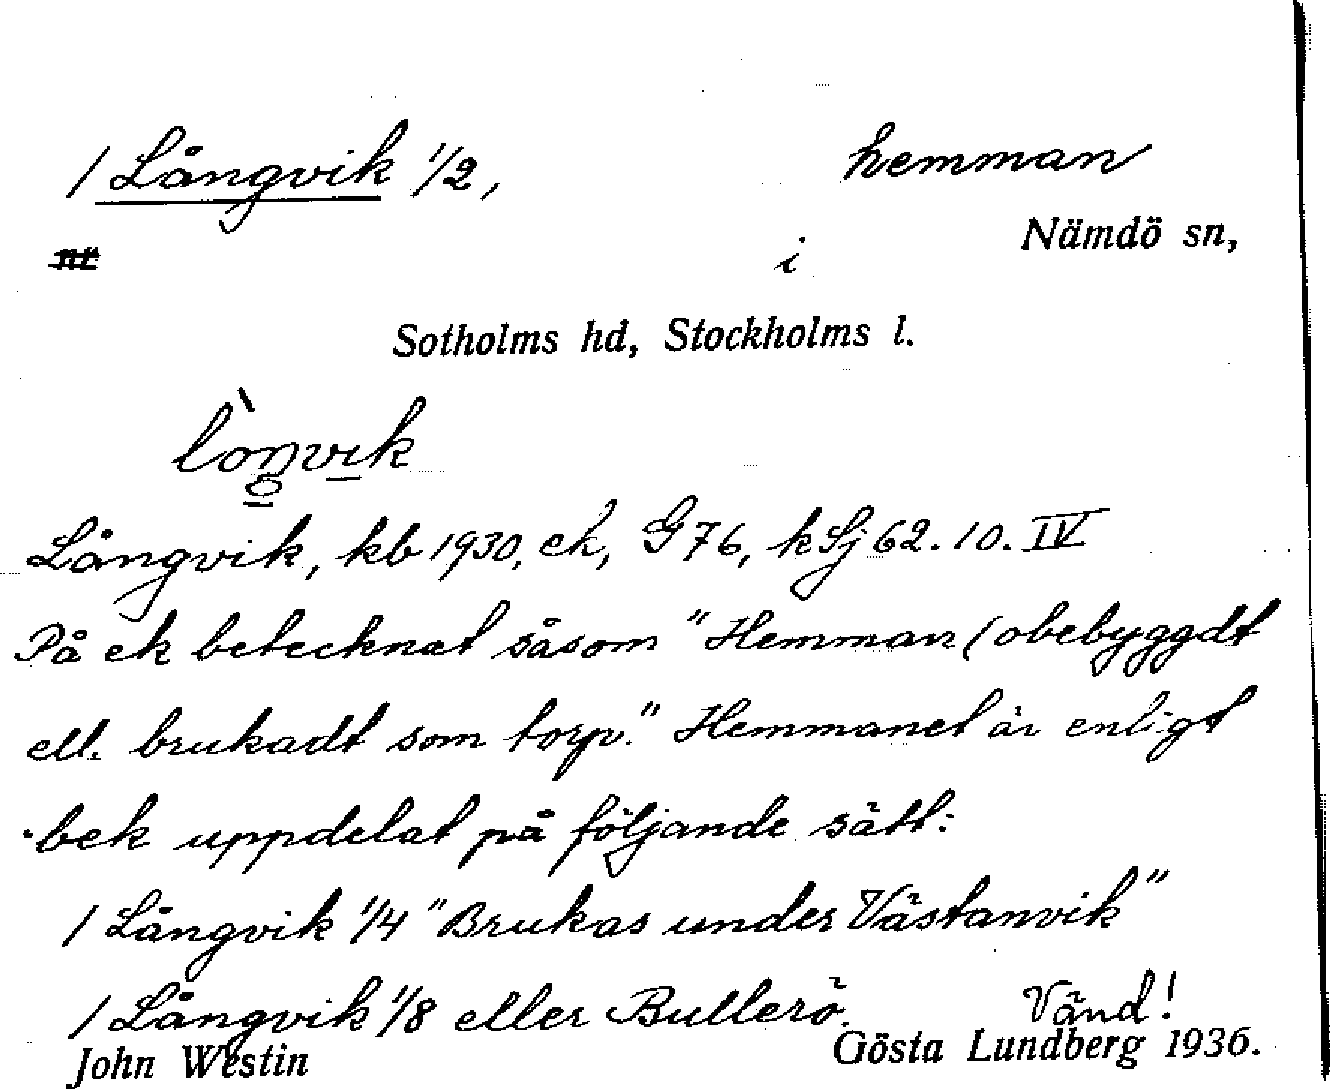 1 Långvik 1/2, hemman
i Nämdö sn,
Sotholms hd, Stockholms l.
Långvik, kb 1930, ek, G 76, kSj 62. 10. IV
På ek betecknat såsom "Hemman (obebyggdt
ell. brukadt som torp." Hemmanet är enligt
bek uppdelat på följande sätt:
1 Långvik 1/4 "Brukas under Västanvik"
1 Långvik 1/8 eller Bullerö. Vänd!
John Westin Gösta Lundberg 1936.